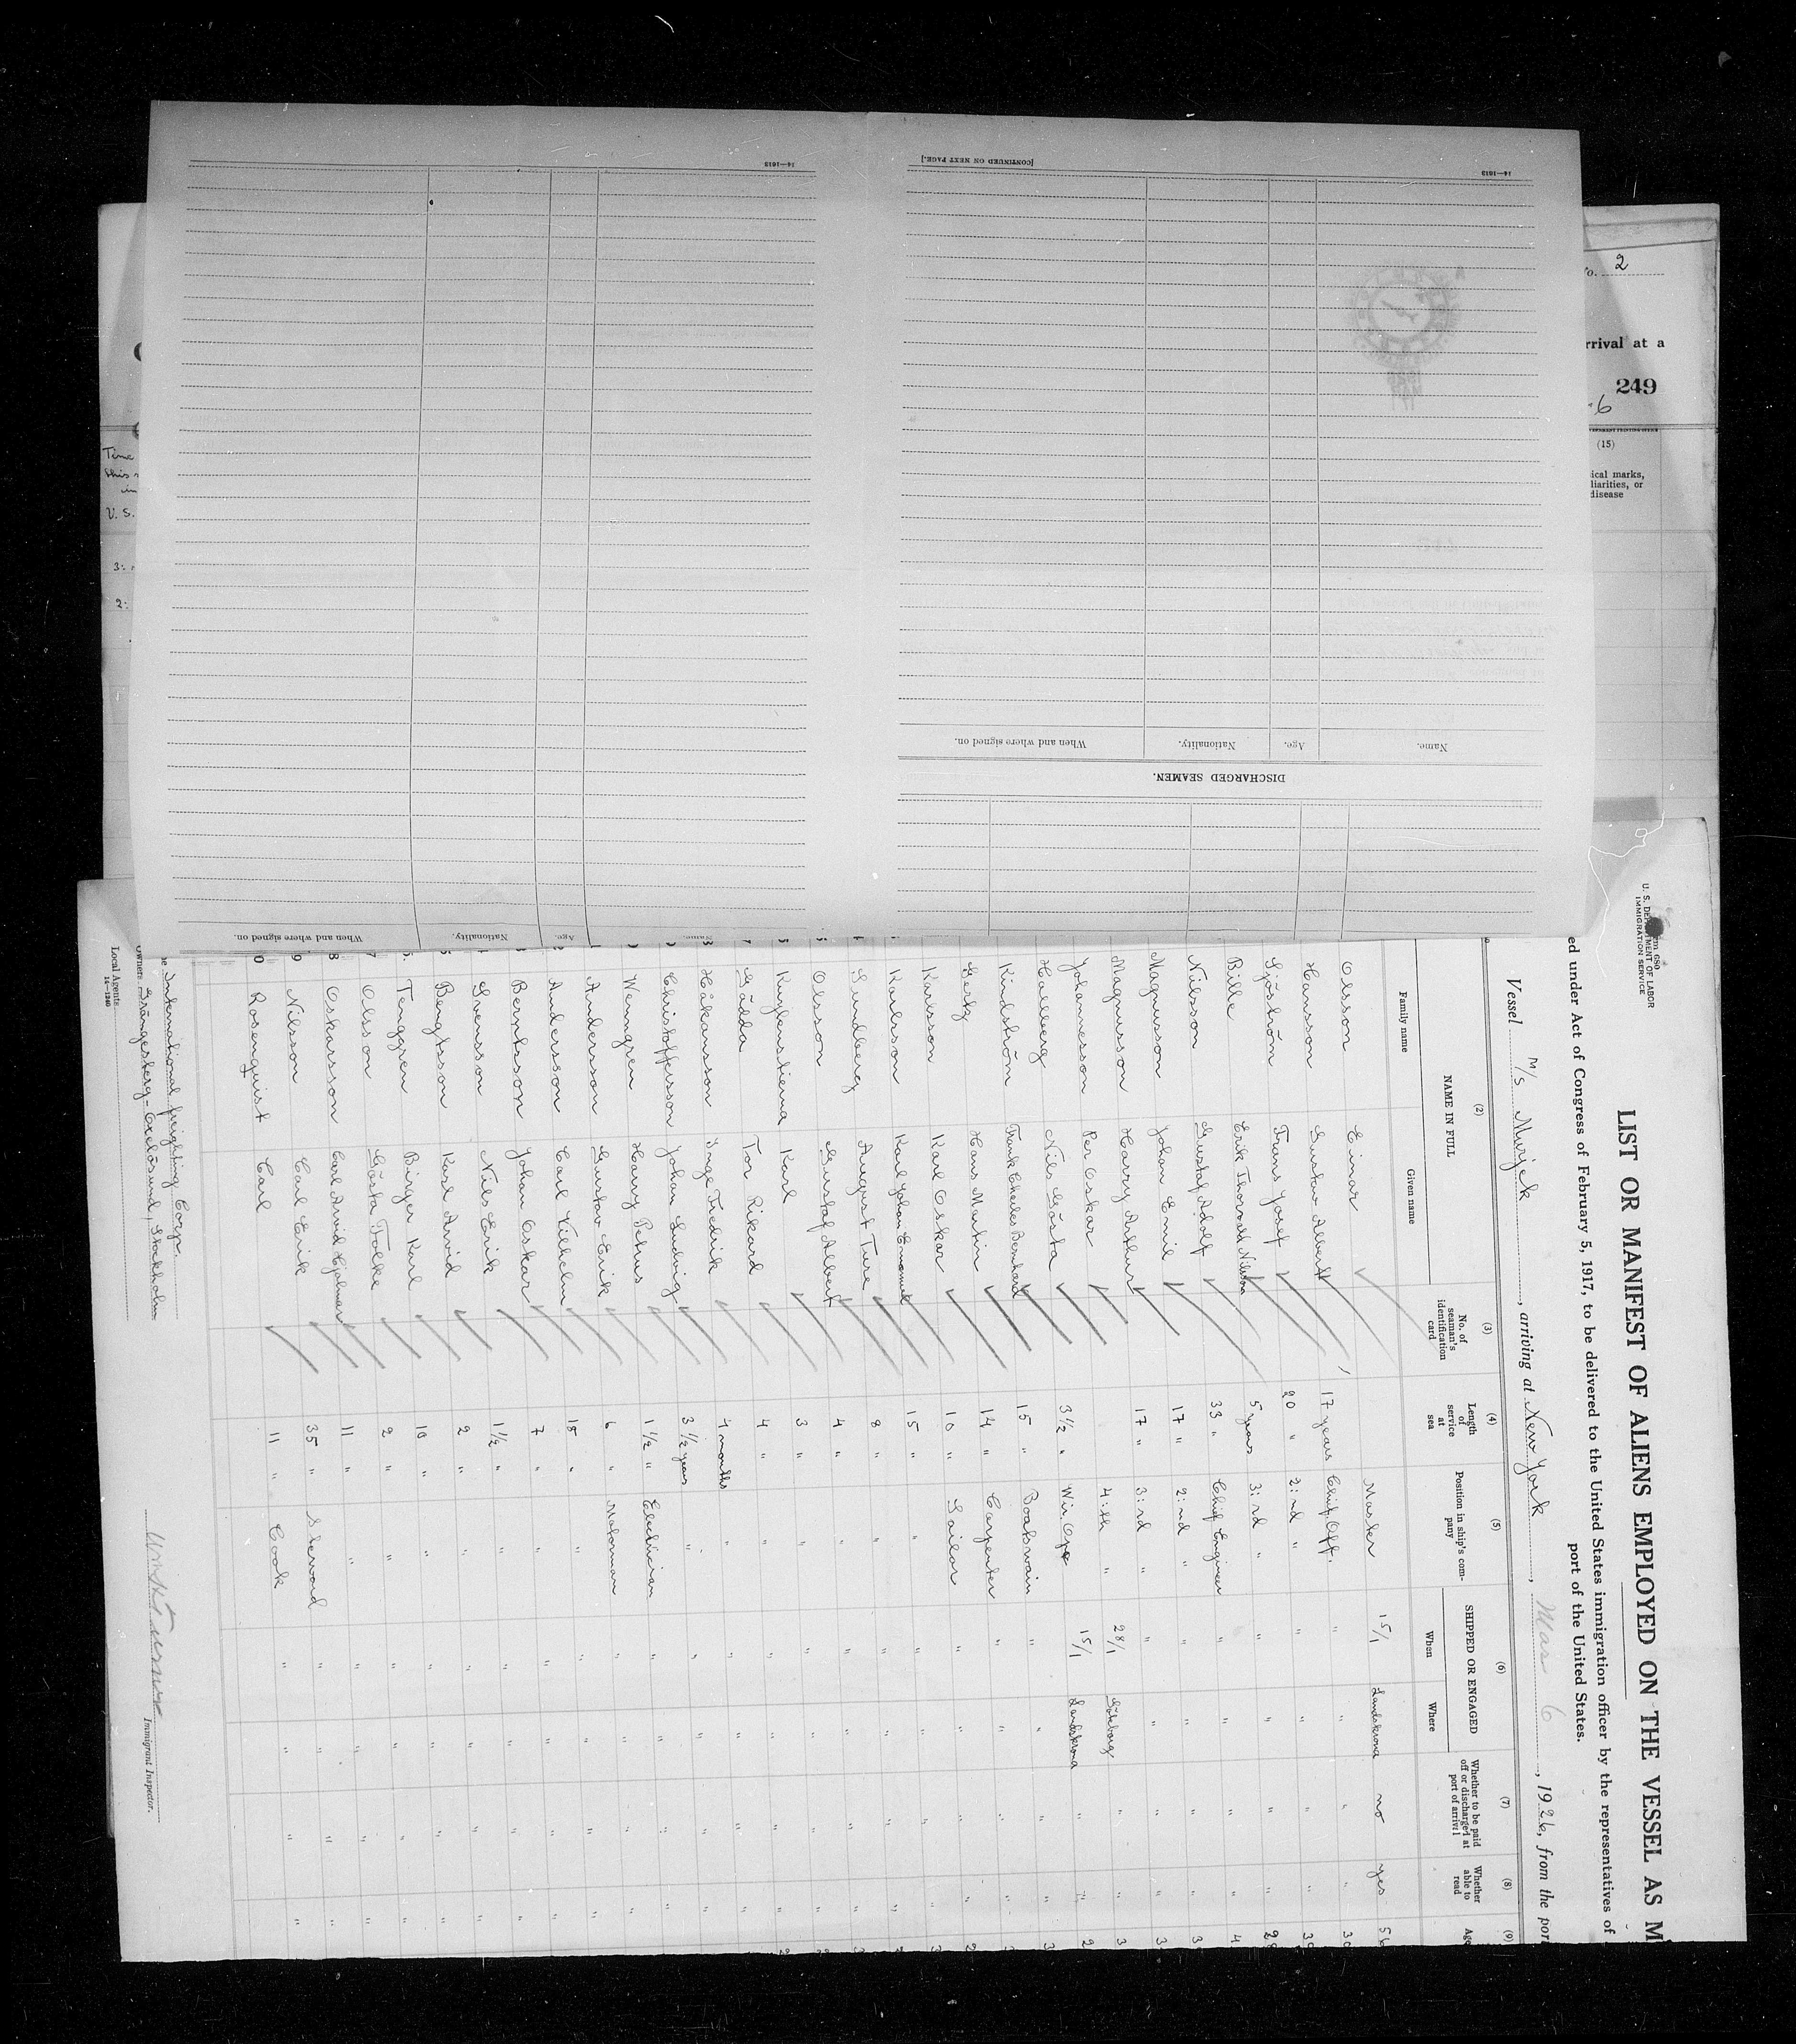 14—1613
[CONTINUED ON NEXT PAGE.]
14—1613
When and where signed on.
Nationality.
Age.
Name.
DISCHARGED SEAMEN.
When and where signed on.
Nationality.
Age.
Name.
2
rrival at a
249
6
(15)
ical marks,
liarities, or
disease
Time
this
in
U. S.
3:
2:
U. S. DEPARTMENT OF LABOR
IMMIGRATION SERVICE
LIST OR MANIFEST OF ALIENS EMPLOYED ON THE VESSEL AS M
ed under Act of Congress of February 5, 1917, to be delivered to the United States immigration officer by the representatives of
port of the United States.
Vessel M/S Murjek, arriving at New York, Mar 6, 1926, from the port
(2) (3) (4) (5) (6) (7) (8) (9)
NAME IN FULL
Family name Given name
No. of seaman's identification card
Length of service at sea
Position in ship's company
SHIPPED OR ENGAGED
When Where
Whether to be paid off or discharged at port of arrival
Whether able to read
Age
Olsson Einar Master 15/1 Landskrona no yes 56
Hansson Gustav Albert 17 years Chief Off. " " " " 30
Sjöström Frans Josef 20 " 2:nd " " " " " 30
Bille Erik Thorvald Nilsson 5 years 3:rd " " " " " 28
Nilsson Gustaf Adolf 33 " Chief Engineer " " " " 4
Magnusson Johan Emil 17 " 2:nd " " " " " 3
Magnusson Harry Arthur 17 " 3:rd " " " " " 3
Johannesson Per Oskar 4:th " 28/1 Göteborg " " 3
Hallberg Nils Gösta 3½ " Wir. Op. 15/1 Landskrona " " 2
Kindström Frank Charles Bernhard 15 " Boatswain " " " " 3
Gertz Hans Martin 14 " Carpenter " " " "
Karlsson Karl Oskar 10 " Sailor " " " " 2
Karlsson Karl Johan Emanuel 15 " " " " " " 3
Sundberg August Ture 8 " " " " " "
Olsson Gustaf Albert 4 " " " " " "
Kuylenstierna Karl 3 " " " " " "
Gädda Tor Rikard 4 " " " " " "
Håkansson Inge Fredrik 4 months " " " " "
Christoffersson Johan Ludvig 3½ years " " " " "
Wenngren Harry Petrus 1½ " Electrician " " " "
Andersson Gustav Erik 6 " Motorman " " " "
Andersson Carl Vilhelm 18 " " " " " "
Berntsson Johan Oskar 7 " " " " " "
Svensson Nils Erik 1½ " " " " " "
Bengtsson Karl Arvid 2 " " " " " "
Tenggren Birger Karl 10 " " " " " "
Olsson Gösta Folke 2 " " " " " "
Oskarsson Carl Arvid Hjalmar 11 " " " " " "
Nilsson Carl Erik 35 " Steward " " " "
Rosenquist Carl 11 " Cook " " " "
International freighting Corp.
owners Grängesberg-Oxelösund, Stockholm
Local Agents
14—1240
Immigrant Inspector.